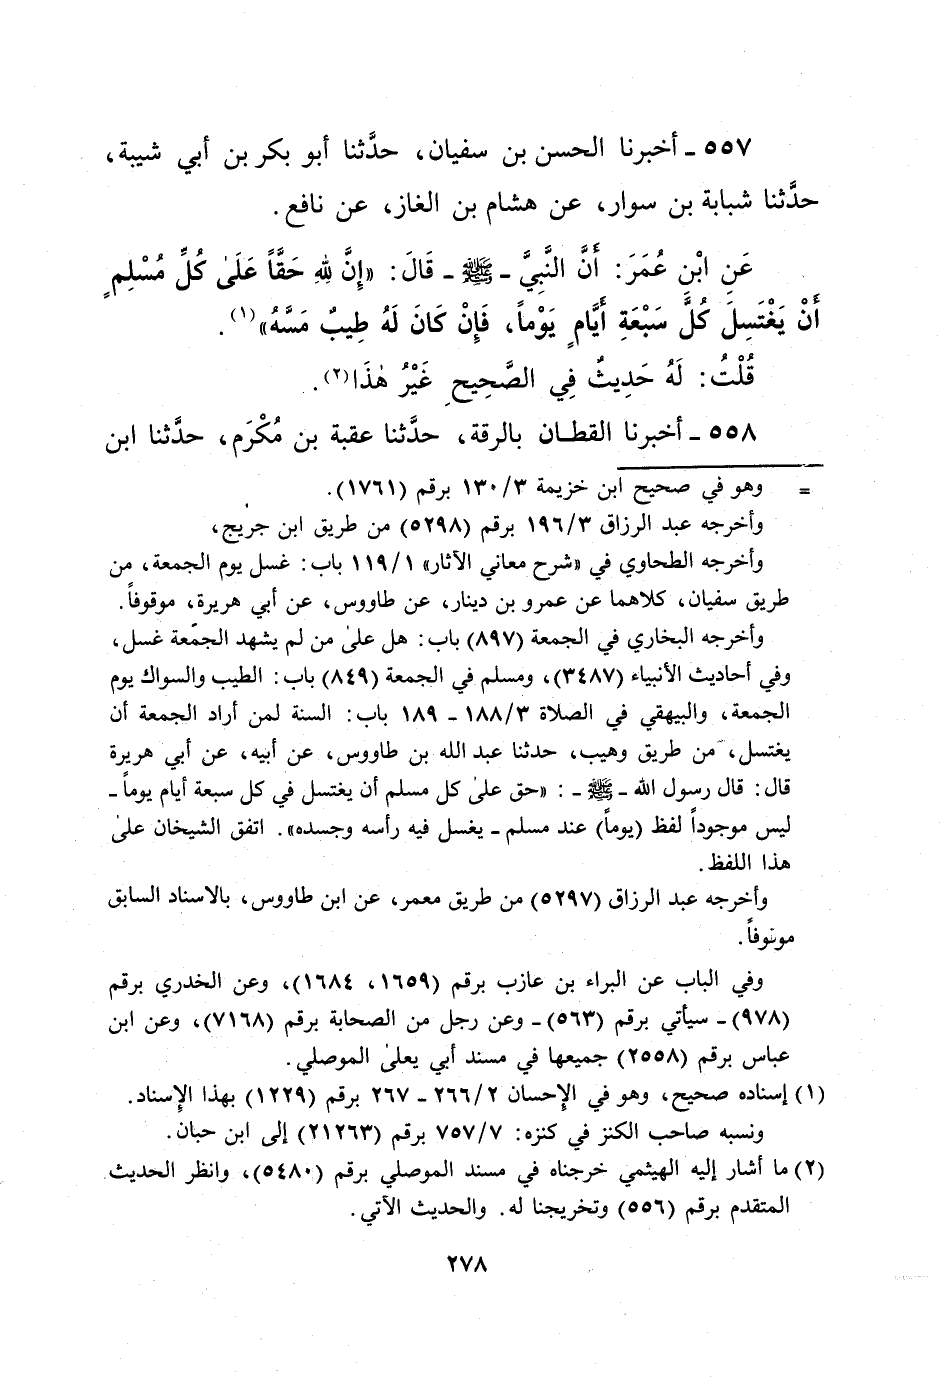 ٥٥٧ ـ أخبرنا الحسن بن سفيان، حدَّثنا أبو بكر بن أبي شيبة،
حدَّثنا شبابة بن سوار، عن هشام بن الغاز، عن نافع.
عَنِ ابْنِ عُمَرَ: أَنَّ النَّبِيَّ ـ ﷺ ـ قَالَ: «إِنَّ لِلّهِ حَقَّاً عَلَىٰ كُلِّ مُسْلِمٍ
أَنْ يَغْتَسِلَ كُلَّ سَبْعَةِ أَيَّامٍ يَوْماً، فَإِنْ كَانَ لَهُ طِيبٌ مَسَّهُ»(١).
قُلْتُ: لَهُ حَدِيثٌ فِي الصَّحِيحِ غَيْرُ هٰذَا(٢).
٥٥٨ ـ أخبرنا القطـان بالرقة، حدَّثنا عقبة بن مُكْرَم، حدَّثنا ابن
= وهو في صحيح ابن خزيمة ١٣٠/٣ برقم (١٧٦١).
وأخرجه عبد الرزاق ١٩٦/٣ برقم (٥٢٩٨) من طريق ابن جريج،
وأخرجه الطحاوي في «شرح معاني الآثار» ١١٩/١ باب: غسل يوم الجمعة، من
طريق سفيان، كلاهما عن عمرو بن دينار، عن طاووس، عن أبي هريرة، موقوفاً.
وأخرجه البخاري في الجمعة (٨٩٧) باب: هل علىٰ من لم يشهد الجمعة غسل،
وفي أحاديث الأنبياء (٣٤٨٧)، ومسلم في الجمعة (٨٤٩) باب: الطيب والسواك يوم
الجمعة، والبيهقي في الصلاة ١٨٨/٣ ـ ١٨٩ باب: السنة لمن أراد الجمعة أن
يغتسل، من طريق وهيب، حدثنا عبد الله بن طاووس، عن أبيه، عن أبي هريرة
قال: قال رسول الله ـ ﷺ ـ : «حق علىٰ كل مسلم أن يغتسل في كل سبعة أيام يوماً ـ
ليس موجوداً لفظ (يوماً) عند مسلم ـ يغسل فيه رأسه وجسده». اتفق الشيخان علىٰ
هذا اللفظ.
وأخرجه عبد الرزاق (٥٢٩٧) من طريق معمر، عن ابن طاووس، بالاسناد السابق
موقوفاً.
وفي الباب عن البراء بن عازب برقم (١٦٥٩، ١٦٨٤)، وعن الخدري برقم
(٩٧٨) ـ سيأتي برقم (٥٦٣) ـ وعن رجل من الصحابة برقم (٧١٦٨)، وعن ابن
عباس برقم (٢٥٥٨) جميعها في مسند أبي يعلىٰ الموصلي.
(١) إسناده صحيح، وهو في الإحسان ٢٦٦/٢ ـ ٢٦٧ برقم (١٢٢٩) بهذا الإسناد.
ونسبه صاحب الكنز في كنزه: ٧٥٧/٧ برقم (٢١٢٦٣) إلى ابن حبان.
(٢) ما أشار إليه الهيثمي خرجناه في مسند الموصلي برقم (٥٤٨٠)، وانظر الحديث
المتقدم برقم (٥٥٦) وتخريجنا له. والحديث الآتي.
٢٧٨